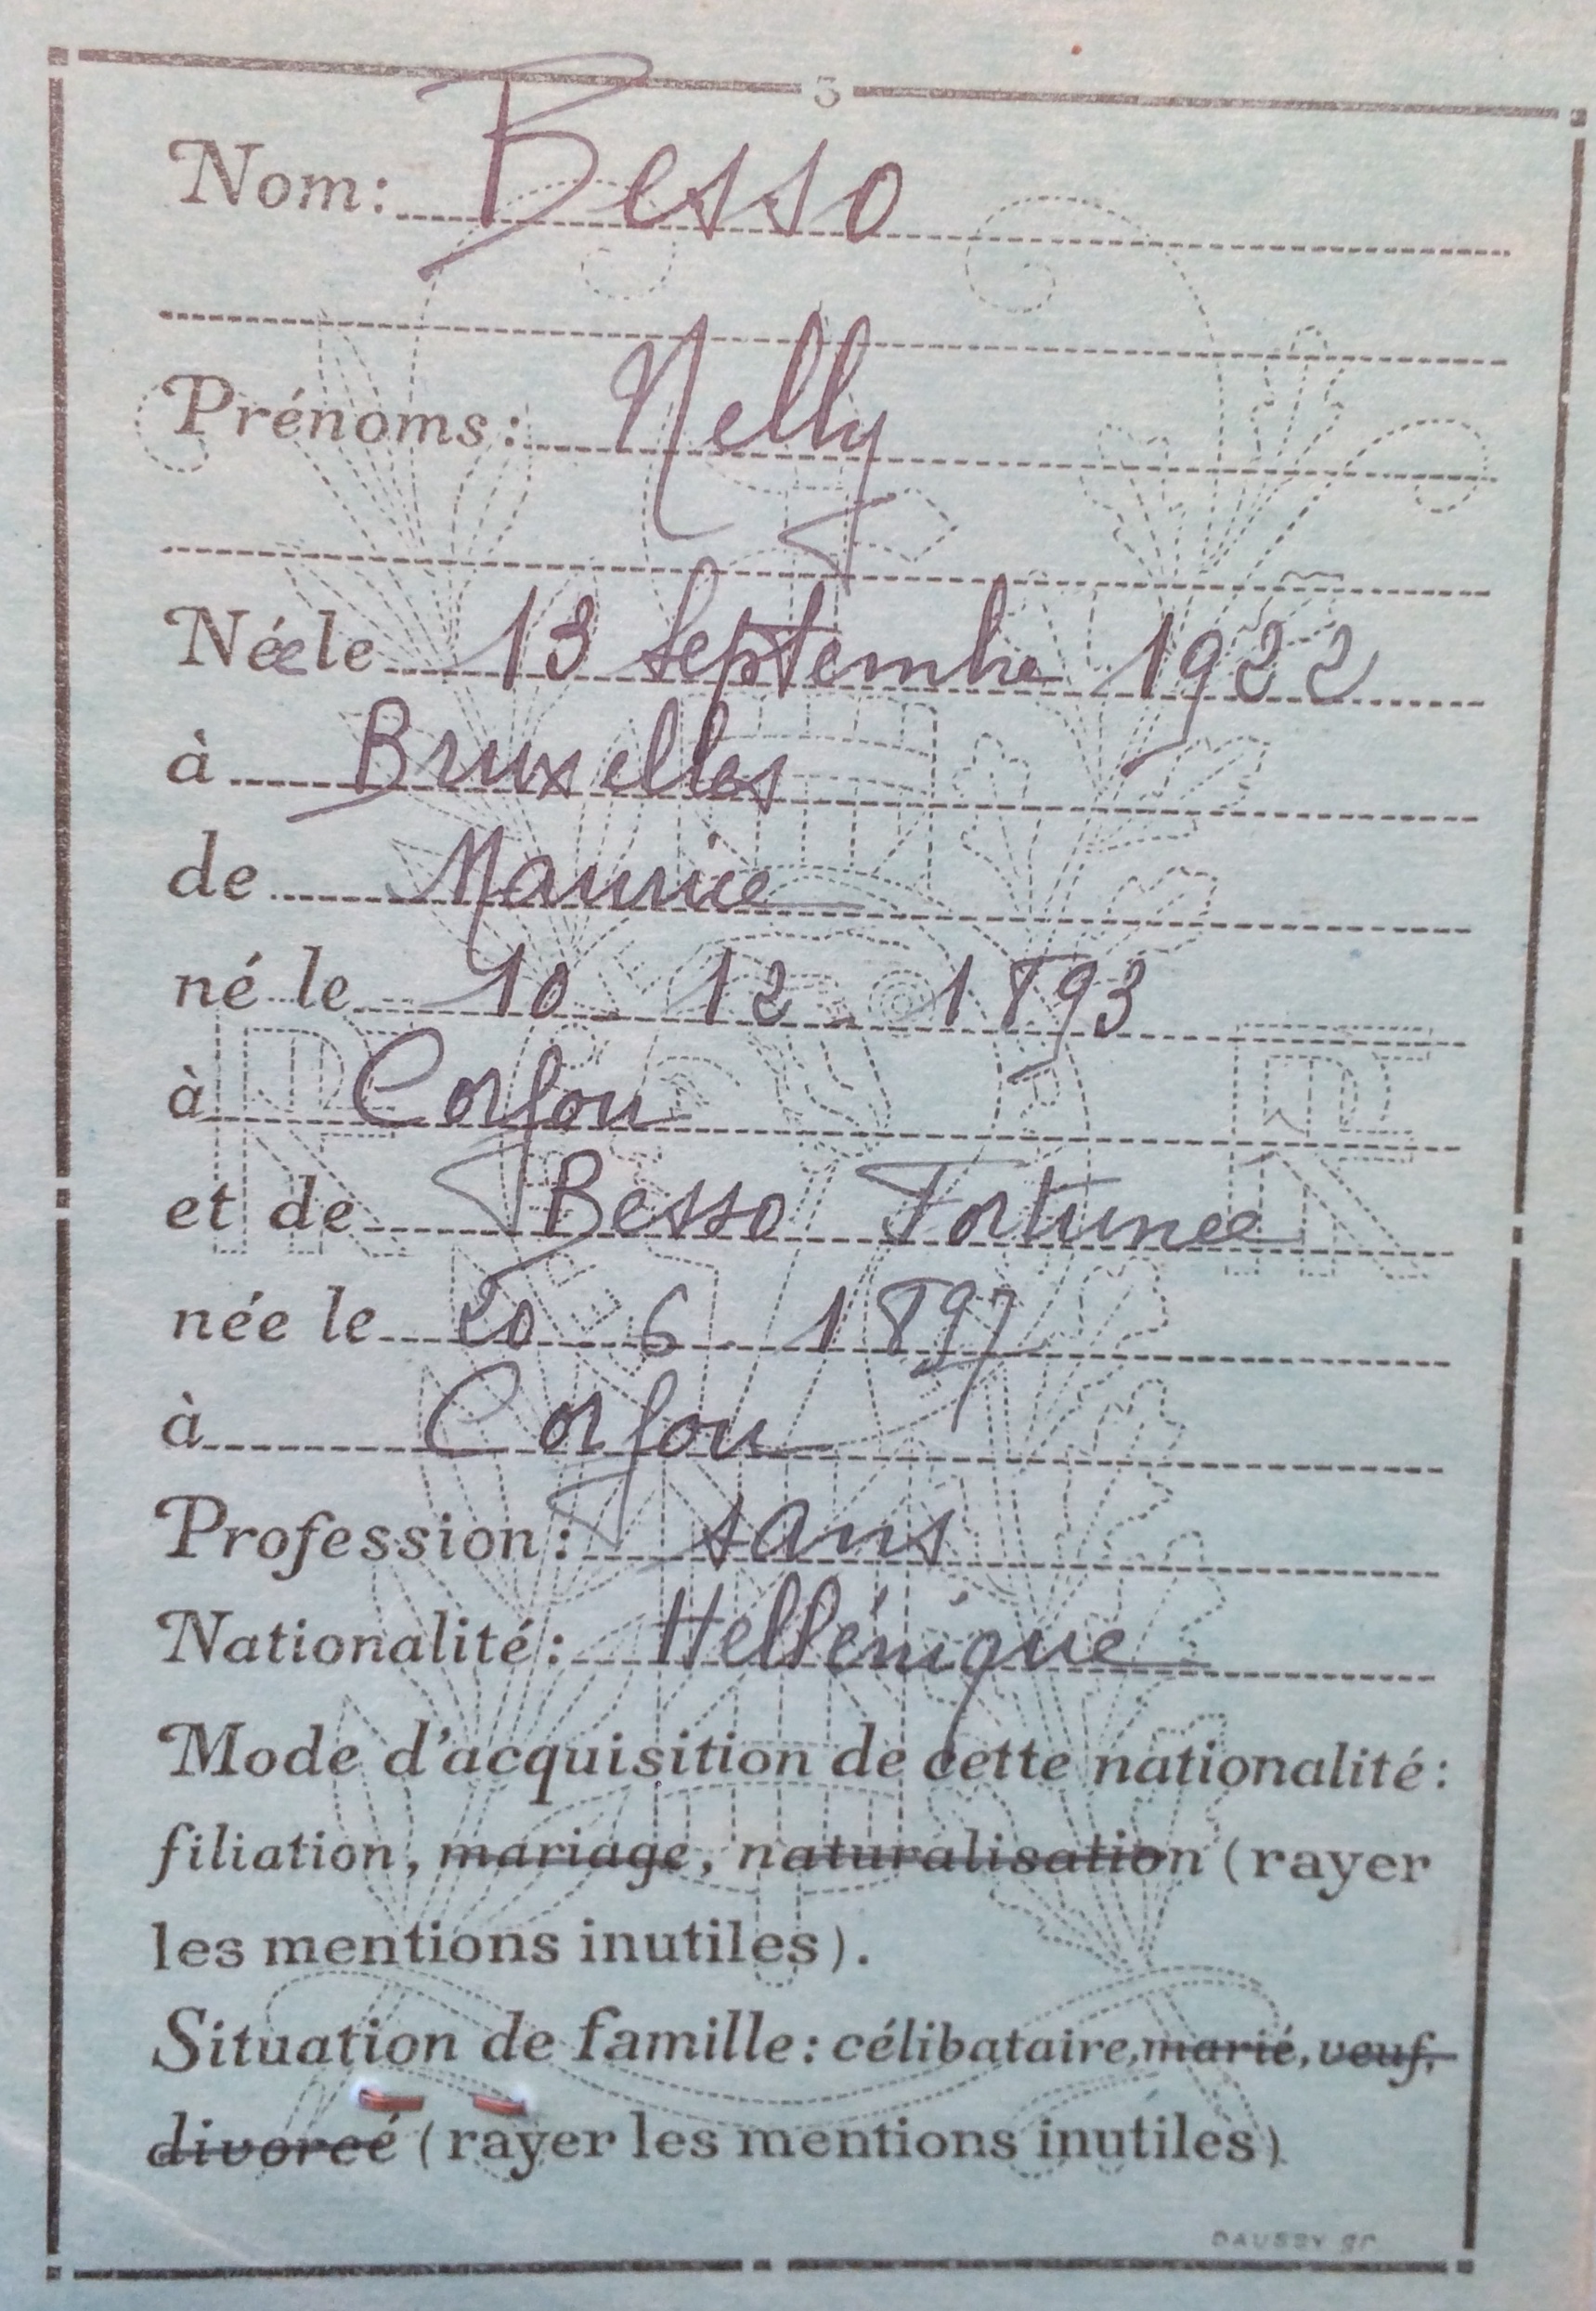 3
Nom: Besso
Prénoms: Nelly
Née le 13 Septembre 1922
à Bruxelles
de Maurice
né le 10 . 12 . 1893
à Corfou
et de Besso Fortunee
née le 20 . 6 . 1897
à Corfou
Profession: sans
Nationalité: Hellénique
Mode d'acquisition de cette nationalité:
filiation, mariage, naturalisation (rayer
les mentions inutiles).
Situation de famille: célibataire, marié, veuf,
divorcé (rayer les mentions inutiles)
DAUSSY gr